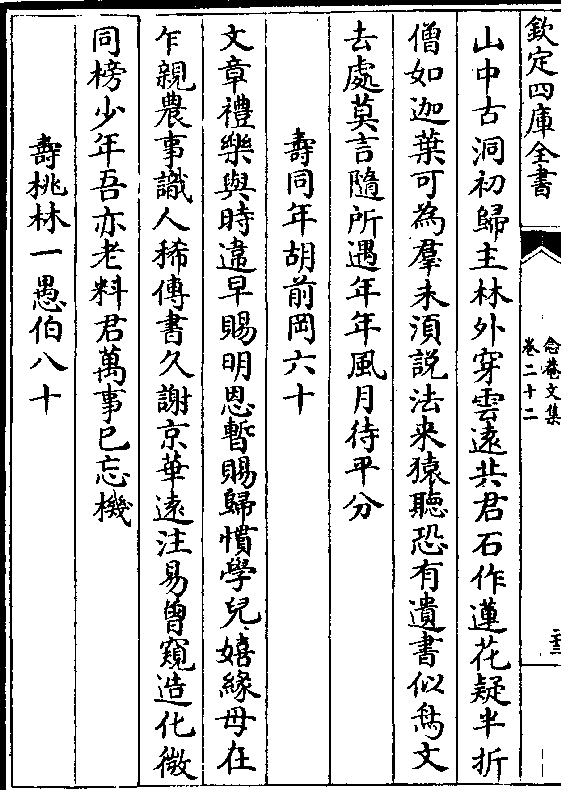 欽定四庫全書
念菴文集
卷二十二
二十三
山中古洞初歸主林外穿雲遠共君石作蓮花疑半折
僧如迦葉可為羣未須説法来猿聽恐有遺書似鳥文
去處莫言隨所遇年年風月待平分
壽同年胡前岡六十
文章禮樂與時違早賜明恩暫賜歸慣學兒嬉緣母在
乍親農事識人稀傳書久謝京華遠注易曽窺造化微
同榜少年吾亦老料君萬事已忘機
壽桃林一愚伯八十